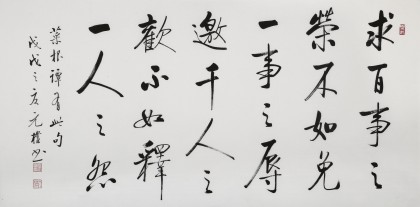 求百事之
榮不如免
一事之辱
邀千人之
歡不如釋
一人之怨
菜根譚有此句
戊戌之夏元